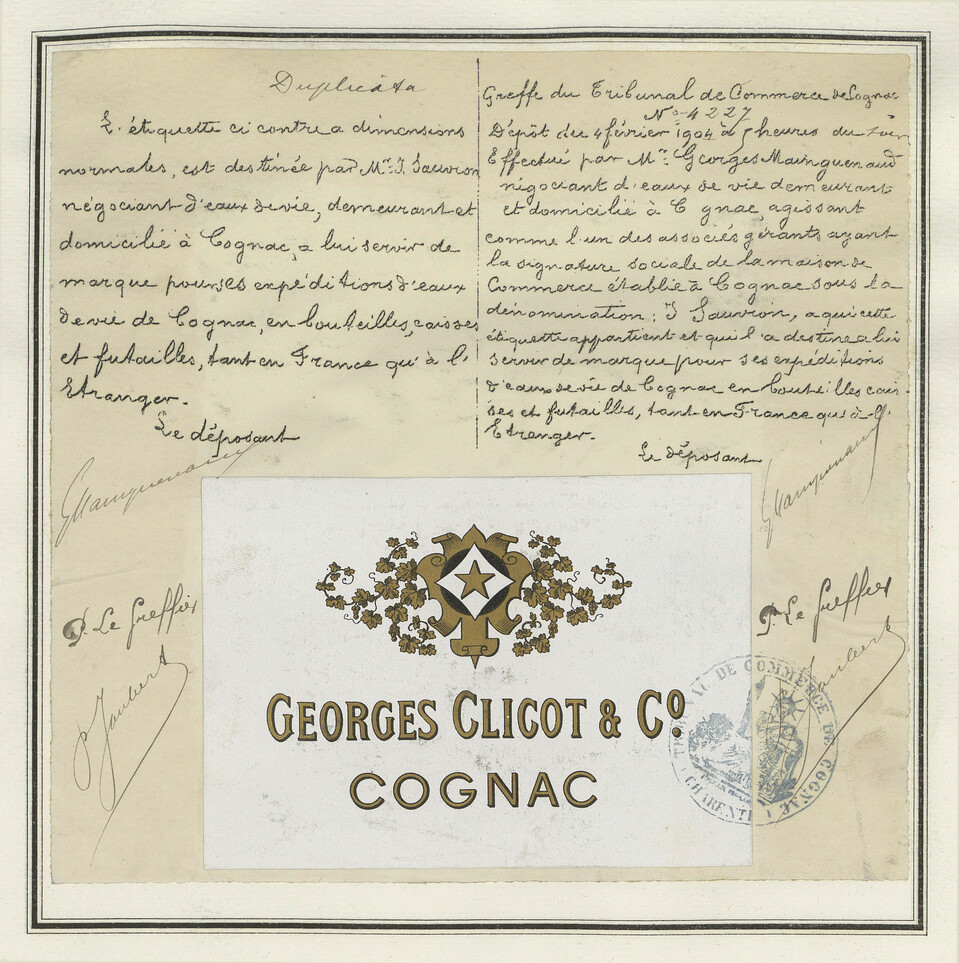 Duplicata
L'étiquette ci contre a dimensions
normales, est destinée par Mr. J. Sauvion
négociant d'eaux de vie, demeurant et
domicilié à Cognac, a lui servir de
marque pour ses expéditions d'eaux
de vie de Cognac, en bouteilles, caisses
et futailles, tant en France qu'à l'
Etranger.
Le déposant
GMainguenaud
P. Le Greffier
Jaubert
Greffe du Tribunal de Commerce de Cognac
No 4227
Dépôt du 4 février 1904 à 5 heures du soir
Effectué par Mr. Georges Mainguenaud
négociant d'eaux de vie demeurant
et domicilié à C gnac, agissant
comme l'un des associés gérants ayant
la signature sociale de la maison de
Commerce établie à Cognac sous la
dénomination: J Sauvion, a qui cette
étiquette appartient et qu'il a destine a lui
servir de marque pour ses expéditions
d'eaux de vie de Cognac en bouteilles cais-
ses et futailles, tant en France qu'à l'
Etranger.
Le déposant
GMainguenaud
P. Le Greffier
Jaubert
GEORGES CLICOT & CO.
COGNAC
TRIBUNAL DE COMMERCE DE COGNAC
CHARENTE